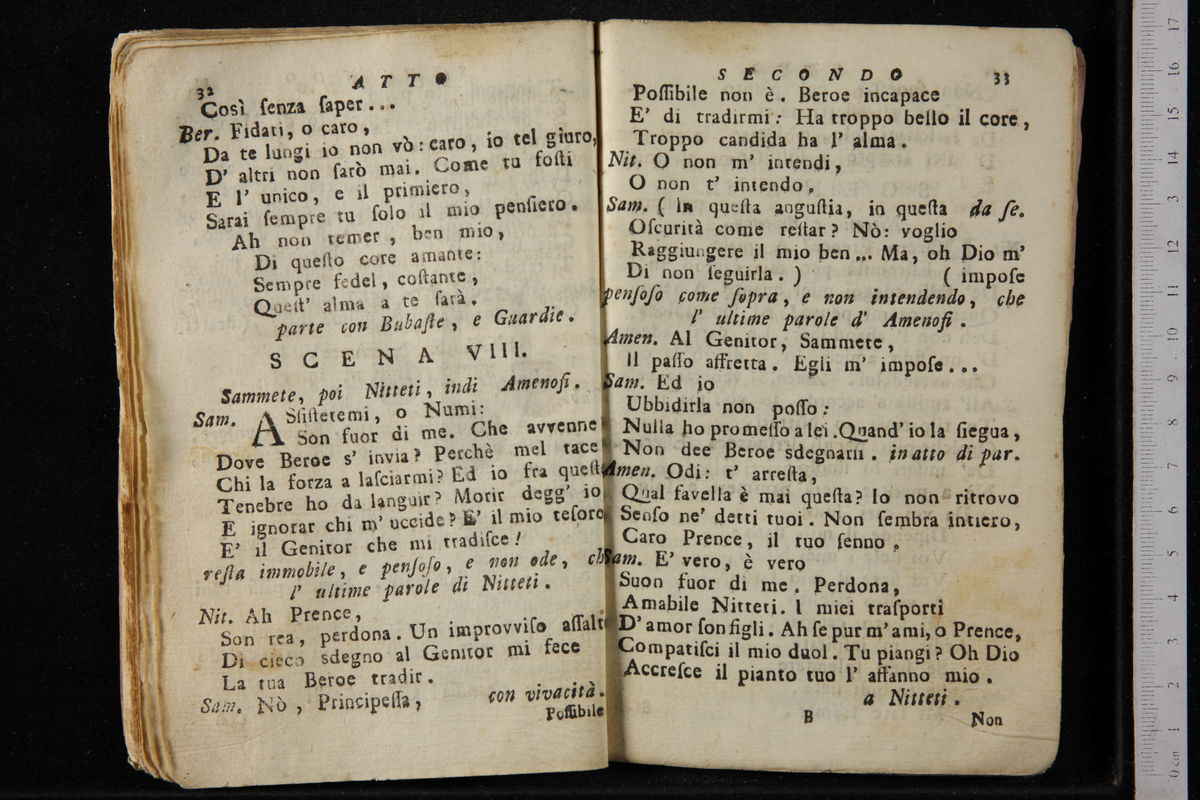 32
ATTO
Così ſenza ſaper...
Ber. Fidati, o caro,
Da te lungi io non vò: caro, io tel giuro,
D' altri non ſarò mai. Come tu foſti
E l' unico, e il primiero,
Sarai ſempre tu ſolo il mio penſiero.
Ah non temer, ben mio,
Di queſto core amante:
Sempre fedel, coſtante,
Queſt' alma a te ſarà.
parte con Bubaſte, e Guardie.
SCENA VIII.
Sammete, poi Nitteti, indi Amenofi.
Sam. ASſiſtetemi, o Numi:
Son fuor di me. Che avvenne
Dove Beroe s' invia? Perchè mel tace
Chi la forza a laſciarmi? Ed io fra queſte
Tenebre ho da languir? Morir degg' io
E ignorar chi m' uccide? E' il mio teſoro
E' il Genitor che mi tradiſce!
reſta immobile, e penſoſo, e non ode, ch
l' ultime parole di Nitteti.
Nit. Ah Prence,
Son rea, perdona. Un improvviſo aſſalto
Di cieco sdegno al Genitor mi fece
La tua Beroe tradir.
Sam. Nò, Principeſſa, con vivacità.
Poſſibile
SECONDO
33
Poſſibile non è. Beroe incapace
E' di tradirmi: Ha troppo bello il core,
Troppo candida ha l' alma.
Nit. O non m' intendi,
O non t' intendo.
Sam. ( In queſta anguſtia, in queſta da ſe.
Oſcurità come reſtar? Nò: voglio
Raggiungere il mio ben... Ma, oh Dio m'
Di non ſeguirla. ) ( impoſe
penſoſo come ſopra, e non intendendo, che
l' ultime parole d' Amenofi.
Amen. Al Genitor, Sammete,
Il paſſo affretta. Egli m' impoſe...
Sam. Ed io
Ubbidirla non poſſo:
Nulla ho promeſſo a lei. Quand' io la ſiegua,
Non dee Beroe sdegnarſi. in atto di par.
Amen. Odi: t' arreſta,
Qual favella è mai queſta? Io non ritrovo
Senſo ne' detti tuoi. Non ſembra intiero,
Caro Prence, il tuo ſenno.
Sam. E' vero, è vero
Suon fuor di me. Perdona,
Amabile Nitteti. I miei traſporti
D' amor ſon figli. Ah ſe pur m' ami, o Prence,
Compatiſci il mio duol. Tu piangi? Oh Dio
Accreſce il pianto tuo l' affanno mio.
a Nitteti.
B
Non
17
16
15
14
13
12
11
10
9
8
7
6
5
4
3
2
1
0 cm